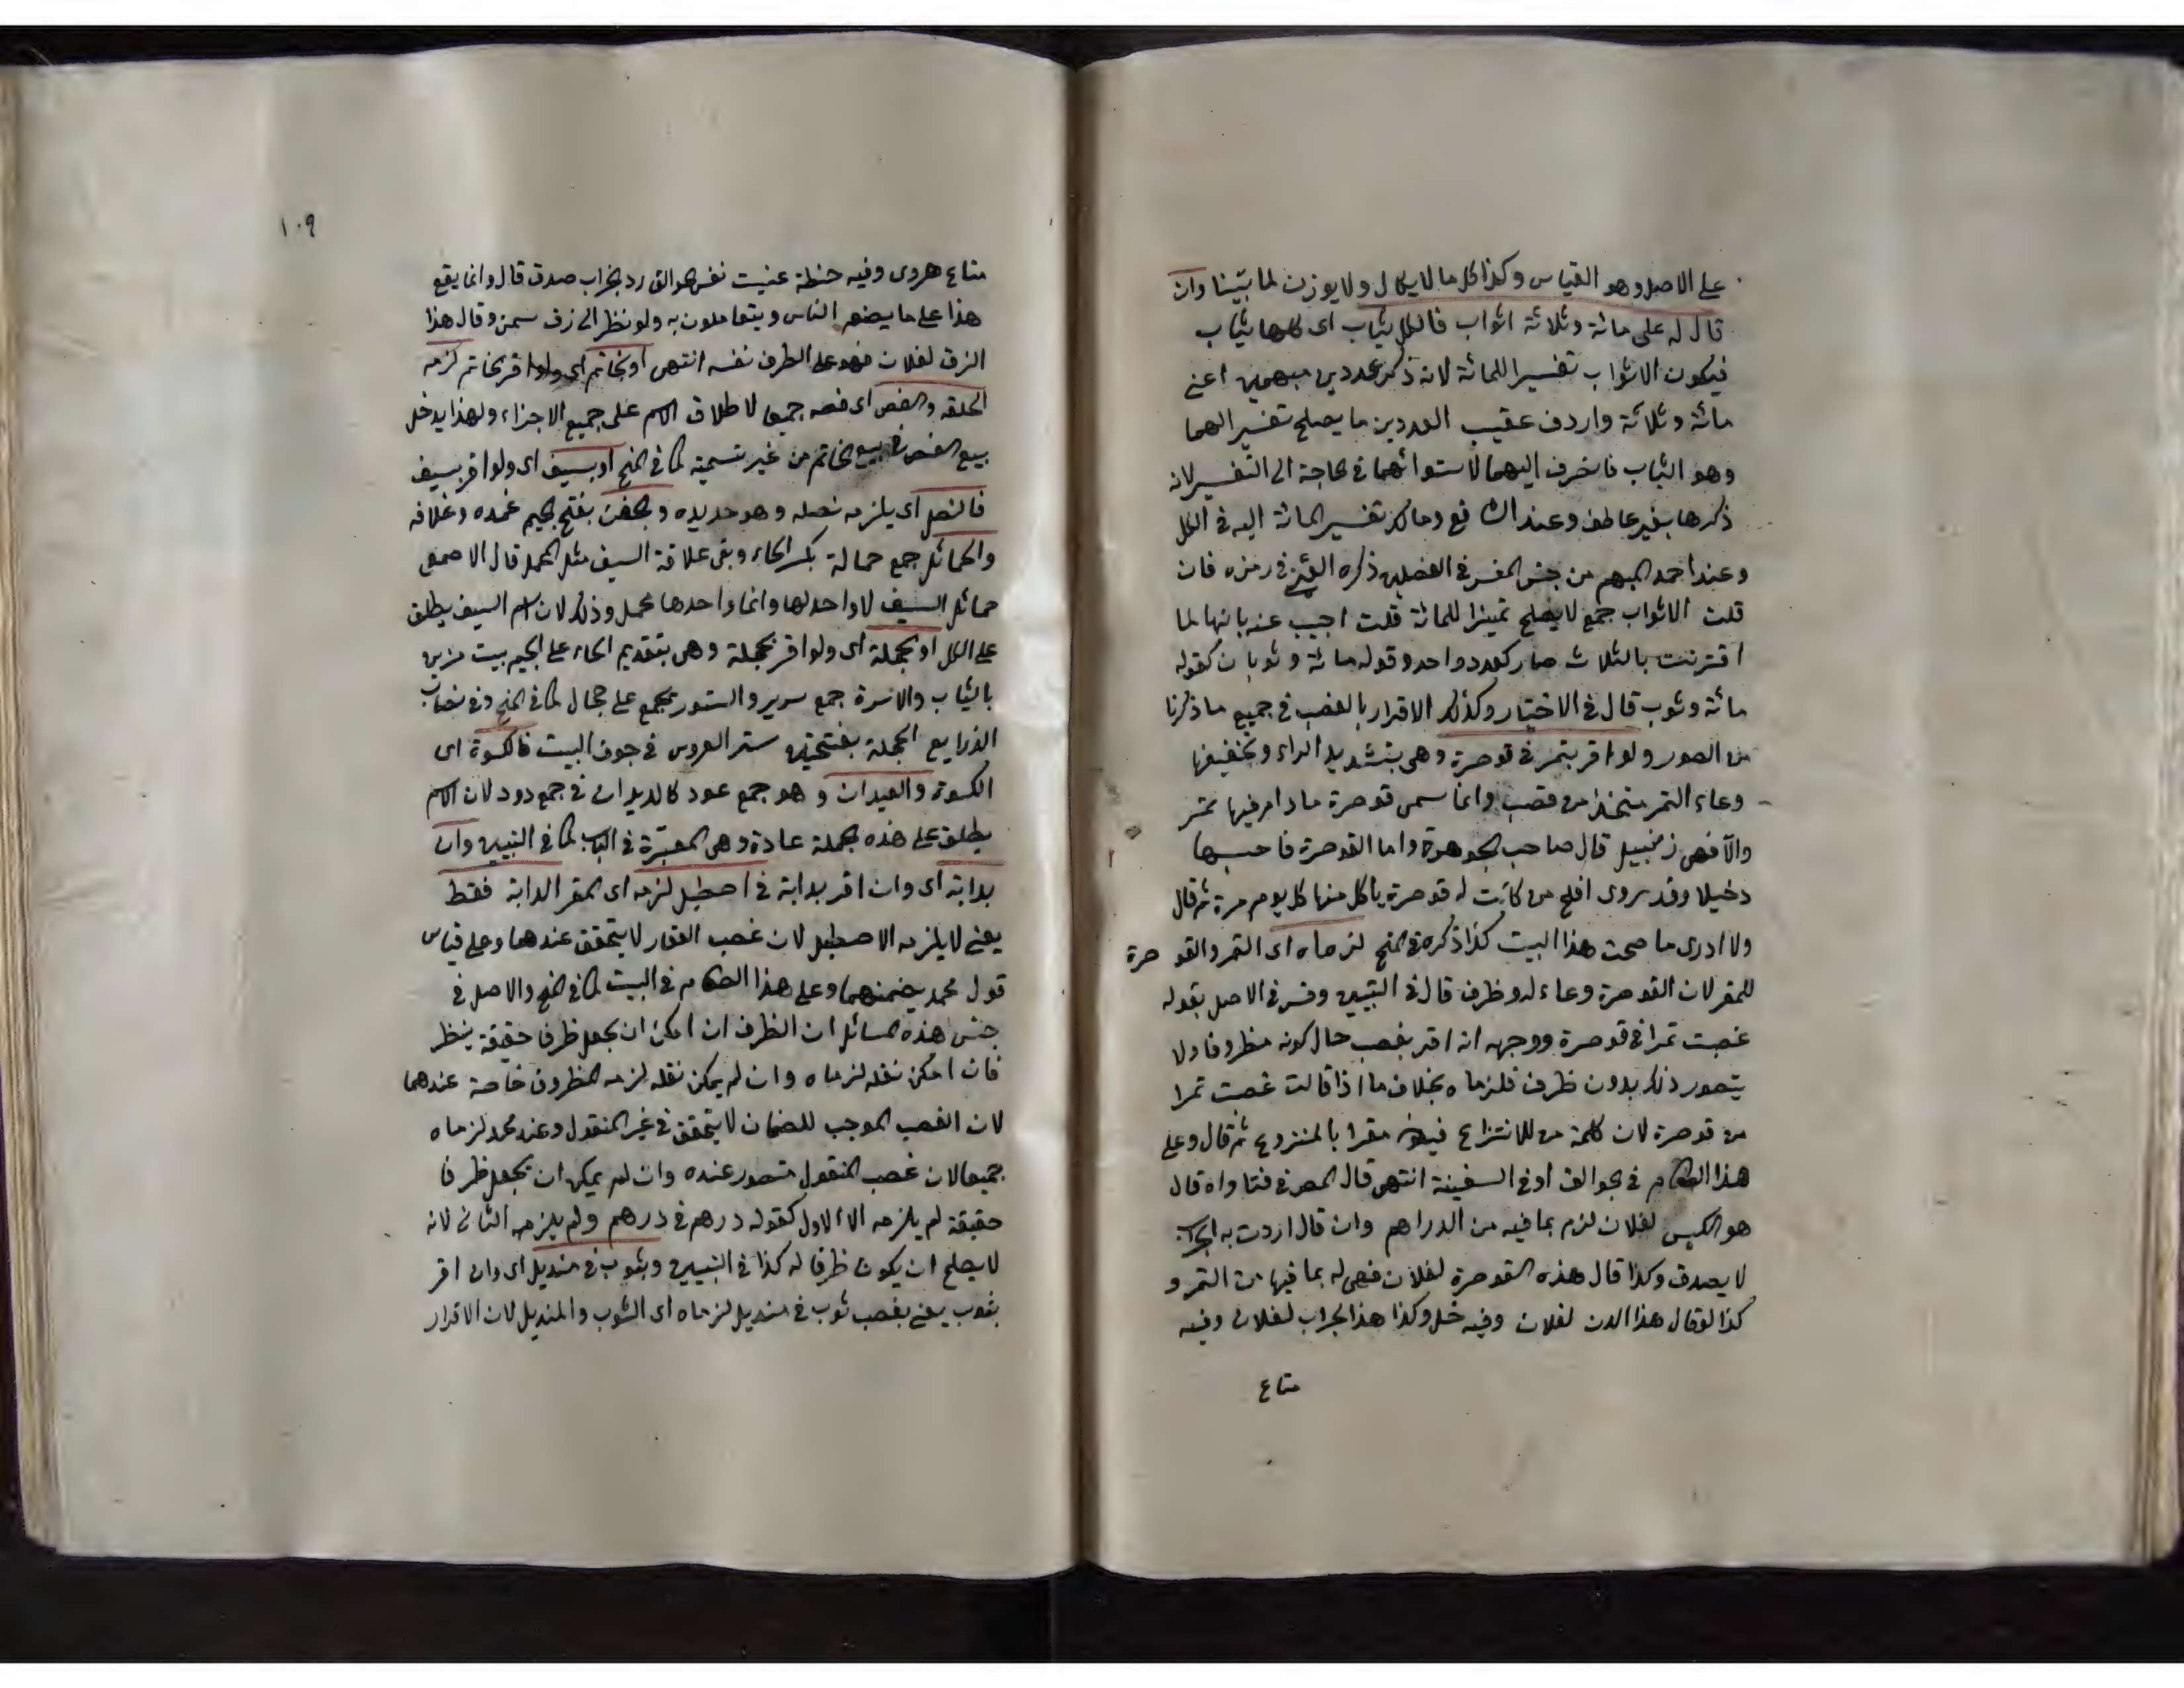 على الاصل وهو القياس وكذا كل ما لا يكال ولا يوزن لما بيّنا وان
قال له على مائة وثلاثة اثواب فالكل ثياب اى كلها ثياب
فيكون الاثواب تفسيرا للمائة لانه ذكر عددين مبهمين اعنى
مائة وثلاثة واردف عقيب العددين ما يصلح تفسيرا لهما
وهو الثياب فانصرف اليهما لاستوائهما فى الحاجة الى التفسير لانه
ذكرها بغير عاطف وعند الشافع ومالك تفسير المائة اليه فى الكل
وعند احمد المبهم من جنس المفسر فى الفصلين ذكره العينى فى رمزه فان
قلت الاثواب جمع لا يصلح تميزا للمائة قلت اجيب عنه بانها لما
اقترنت بالثلاث صار كعدد واحد وقوله مائة وثوبان كقوله
مائة وثوب قال فى الاختيار وكذلك الاقرار بالغصب فى جميع ما ذكرنا
من الصور ولو اقر بتمر فى قوصرة وهى بتشديد الراء وتخفيفها
وعاء التمر متخذ من قصب وانما سمى قوصرة ما دام فيها تمر
والّا فهى زنبيل قال صاحب الجوهرة واما القوصرة فاحسبها
دخيلا وقد يروى افلح من كانت له قوصرة ياكل منها كل يوم مرة ثم قال
ولا ادرى ما صحت هذا البيت كذا ذكره فى المنح لزماه اى التمر والقوصرة
للمقر لان القوصرة وعاء له وظرف قال فى التبيين وفسر فى الاصل بقوله
غصبت تمرا فى قوصرة ووجهه انه اقر بغصب حال كونه مظروفا ولا
يتصور ذلك بدون ظرف فلزماه بخلاف ما اذا قالت غصبت تمرا
من قوصرة لان كلمة من للانتزاع فيكون مقرا بالمنزوع ثم قال وعلى
هذا الطعام فى الجوالق او فى السفينة انتهى قال المص فى فتاواه قال
هو الكيس لفلان لزم بما فيه من الدراهم وان قال اردت به
لا يصدق وكذا قال هذه القوصرة لفلان فهى له بما فيها من التمر و
كذا لو قال هذا الدن لفلان وفيه خل وكذا هذا الجراب لفلان وفيه
متاع
١٠٩
متاع هروى وفيه حنطة عنيت نفس الجوالق رد الجراب صدق قال وانما يقع
هذا على ما يضعه الناس ويتعاملون به ولو نظر الى زق سمن وقال هذا
الزق لفلان فهو على الظرف نفسه انتهى او بخاتم اى ولو اقر بخاتم لزمه
الحلقه والفص اى فصه جميعا لاطلاق الاسم على جميع الاجزاء ولهذا يدخل
بيع الفص فى بيع الخاتم من غير تسمية كما فى المنح او بسيف اى ولو اقر بسيف
فالنصل اى يلزمه نصله وهو حديده والجفن بفتح الجيم غمده وغلافه
والحمائل جمع حمالة بكسر الحاء وبقى علاقة السيف مثل المحمل قال الاصمعى
حمائل السيف لا واحد لها وانما واحدها محمل وذلك لان اسم السيف يطلق
على الكل او بحجلة اى ولو اقر بحجلة وهى بتقديم الحاء على الجيم بيت مزين
بالثياب والاسرة جمع سرير والستور يجمع على حجال كما فى المنح وفى نصاب
الذرايع الحجلة بفتحتين ستر العروس فى جوف البيت فالكسوة اى
الكسوة والعيدان وهو جمع عود كالديدان فى جمع دود لان الاسم
يطلق على هذه الجملة عادة وهى المعتبرة فى الباب كما فى التبيين وان
بدابته اى وان اقر بدابة فى اصطبل لزمه اى المقر الدابة فقط
يعنى لا يلزمه الاصطبل لان غصب العقار لا يتحقق عندهما وعلى قياس
قول محمد يضمنهما وعلى هذا الطعام فى البيت كما فى المنح والاصل فى
جنس هذه المسائل ان الظرف ان امكن ان يجعل ظرفا حقيقة ينظر
فان امكن نقله لزماه وان لم يمكن نقله لزمه المظروف خاصة عندهما
لان الغصب الموجب للضمان لا يتحقق فى غير المنقول وعند محمد لزماه
جميعا لان غصب المنقول متصور عنده وان لم يمكن ان يجعل ظرفا
حقيقة لم يلزمه الا الاول كقوله درهم فى درهم ولم يلزمه الثانى لانه
لا يصلح ان يكون ظرفا له كذا فى التبيين وبثوب فى منديل اى وان اقر
بثوب يعنى بغصب ثوب فى منديل لزماه اى الثوب والمنديل لان الاقرار